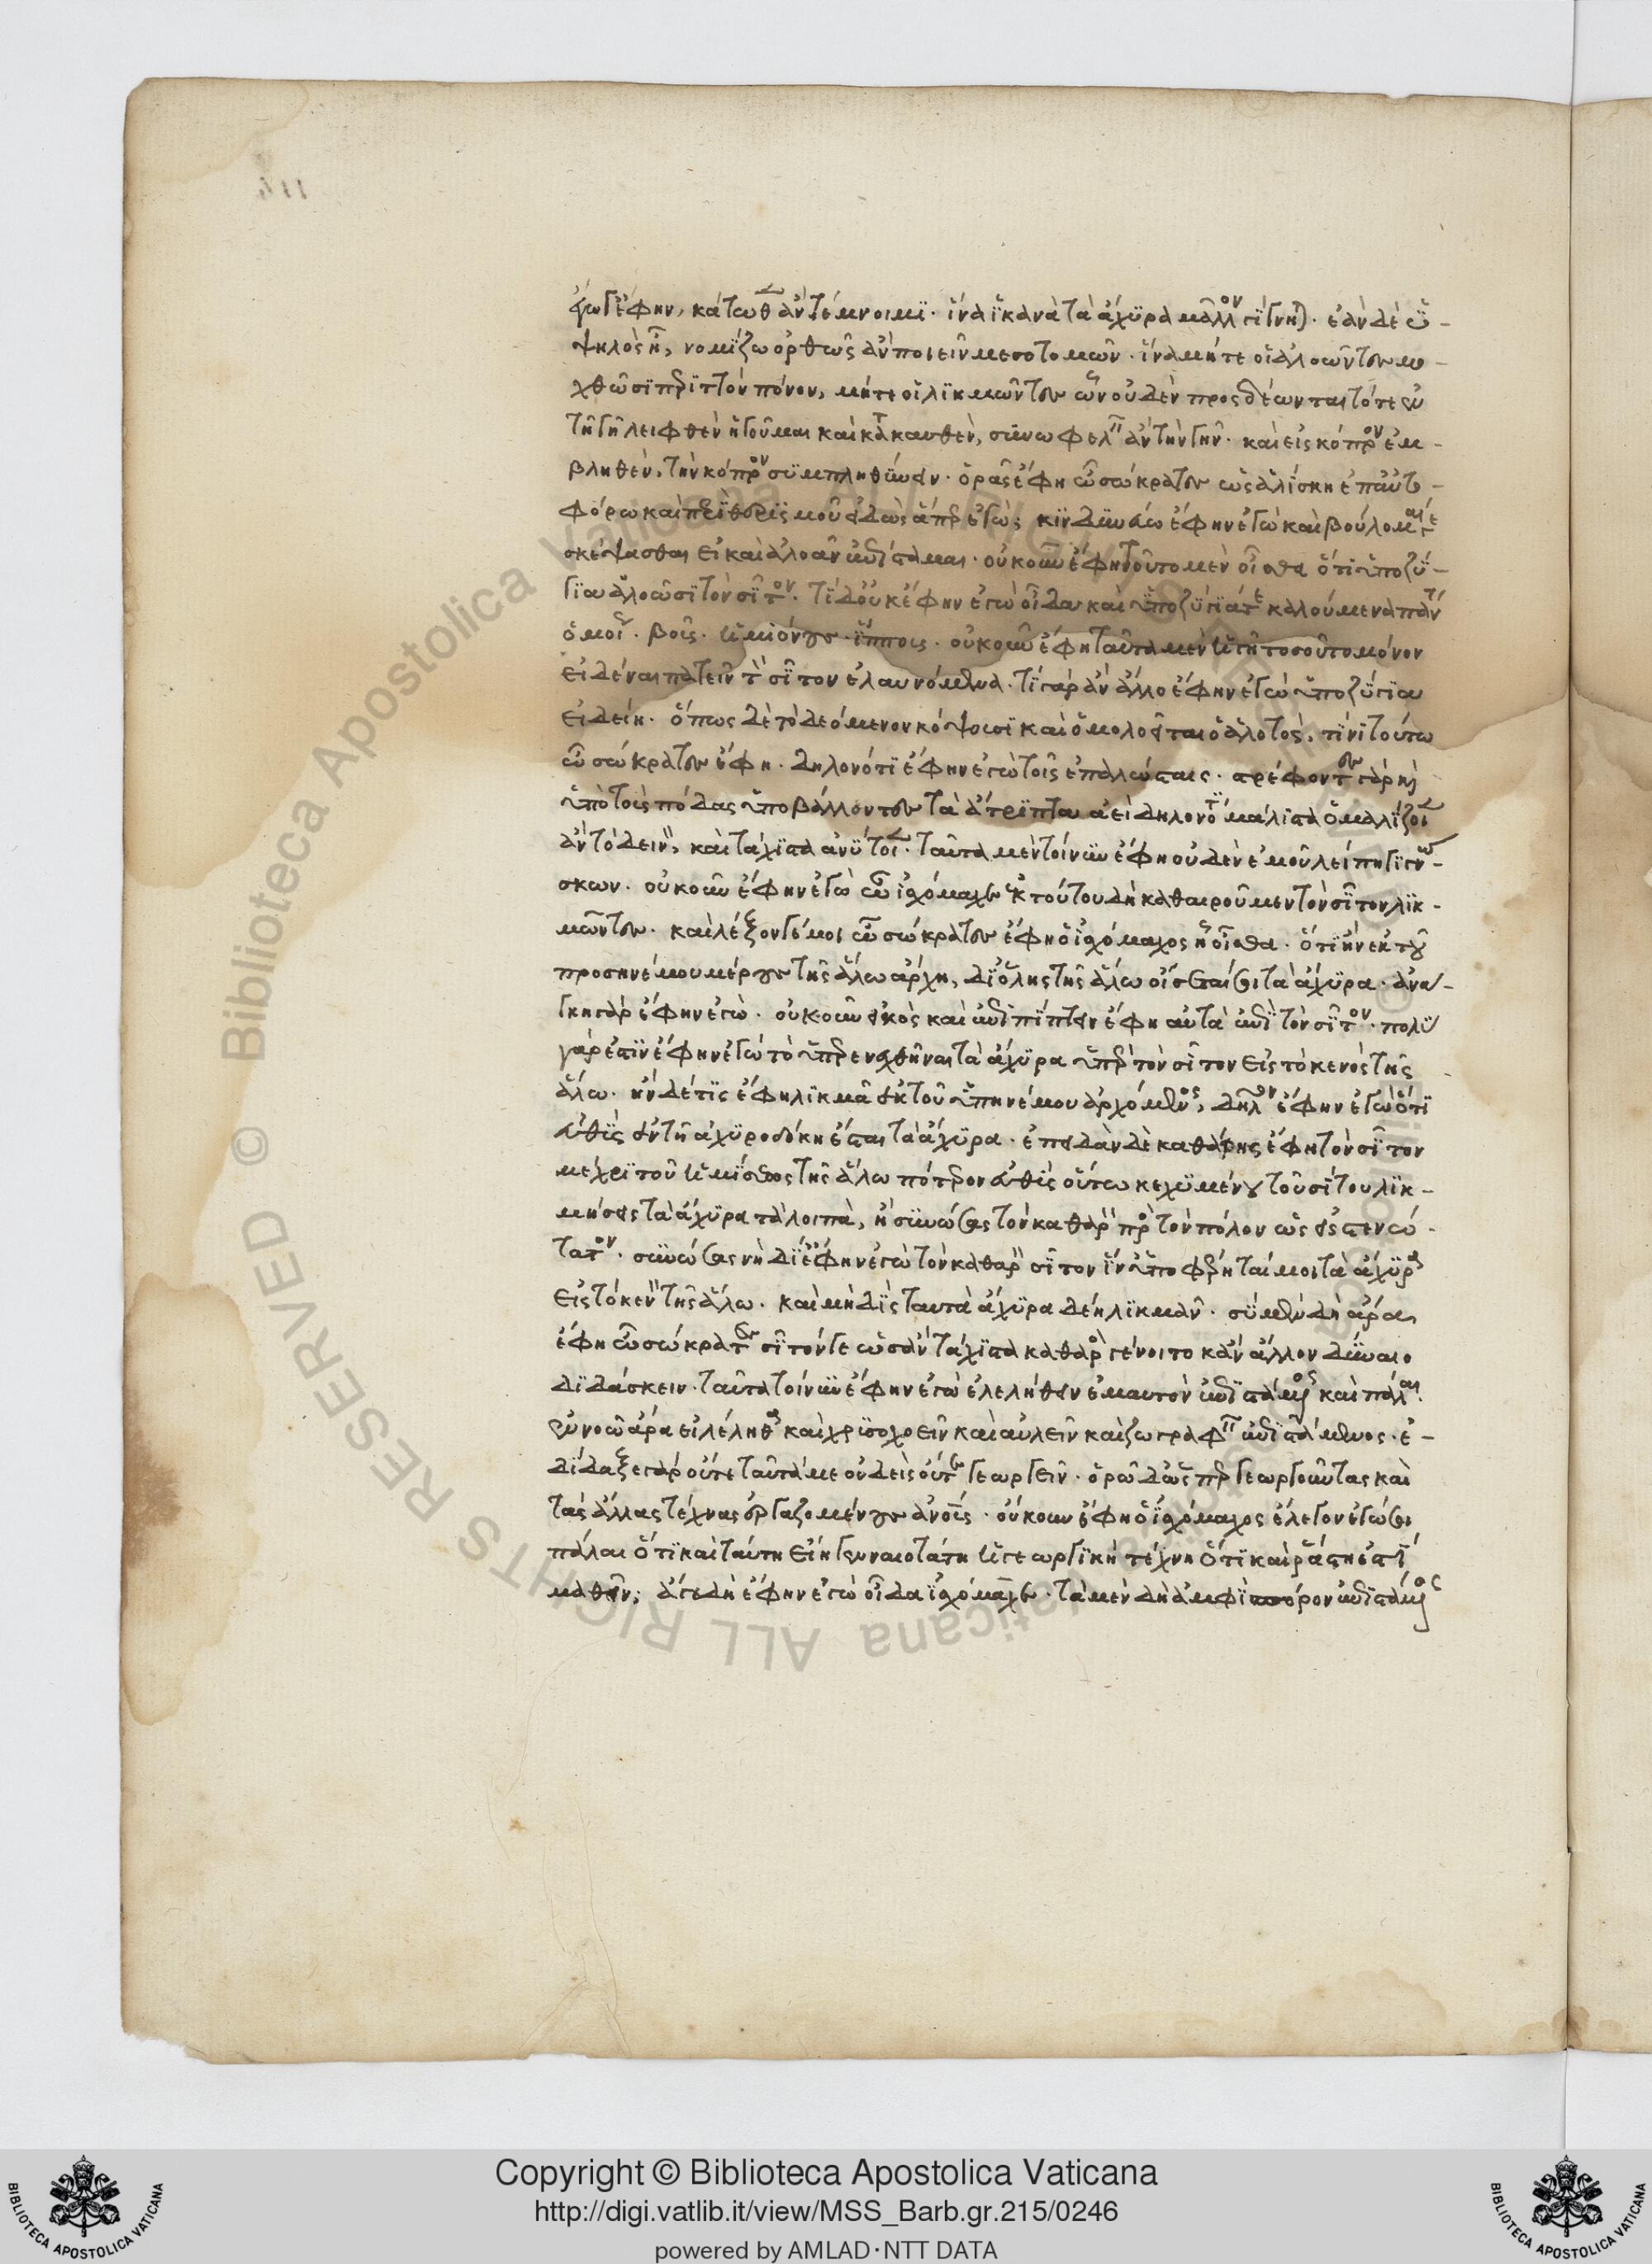 ἔγωγ' ἔφην, κάτωθεν ἂν τέμνοιμι· ἵνα ἱκανὰ τὰ ἄχυρα μᾶλλον γίγνηται· ἐὰν δὲ ὑ-
ψηλὸς ᾖ, νομίζω ὀρθῶς ἂν ποιεῖν μεσοτομῶν· ἵνα μήτε οἱ ἁλοῶντες μο-
χθῶσι περιττὸν πόνον, μήτε οἱ λικμῶντες ὧν οὐδὲν προσδέωνται τό τε ἐν
τῇ γῇ λειφθὲν ἡγοῦμαι καὶ κατακαυθὲν, συνωφελεῖν ἂν τὴν γῆν· καὶ εἰς κόπρον ἐμ-
βληθὲν, τὴν κόπρον συμπληθύνειν· ὁρᾷς ἔφη ὦ σώκρατες ὡς ἁλίσκῃ ἐπ' αὐτο-
φόρω καὶ περὶ θερισμοῦ εἰδὼς ἅπερ ἐγώ; κινδυνεύω ἔφην ἐγὼ καὶ βούλομαί γε
σκέψασθαι εἰ καὶ ἁλοᾶν ἐπίσταμαι· οὐκοῦν ἔφη τοῦτο μὲν οἶσθα ὅτι ὑποζυ-
γίω ἁλοῶσι τὸν σῖτον· τί δ' οὐκ ἔφην ἐγὼ οἶδα καὶ ὑποζύγιά γε καλούμενα πάντα
ὁμοίως· βοῦς· ἡμιόνους· ἵππους· οὐκοῦν ἔφη ταῦτα μὲν ἡγῇ τοσοῦτο μόνον
εἰδέναι πατεῖν τὸν σῖτον ἐλαυνόμενα· τί γὰρ ἂν ἄλλο ἔφην ἐγὼ ὑποζύγια
εἰδείη· ὅπως δὲ τὸ δεόμενον κόψωσι καὶ ὁμολογεῖται ὁ ἀλοτὸς, τίνι τούτω
ὦ σώκρατες ἔφη· δηλονότι ἔφην ἐγὼ τοῖς ἐπαλώσταις· στρέφοντες γὰρ καὶ
ὑπὸ τοὺς πόδας ὑποβάλλοντες τὰ ἄτριπτα ἀεὶ δηλονότι μάλιστα ὁμαλίζοιεν
ἂν τὸ δεῖνον, καὶ τάχιστα ἀνύτοιεν· ταῦτα μὲν τοίνυν ἔφη οὐδὲν ἐμοῦ λείπῃ γιγνώ-
σκων· οὐκοῦν ἔφην ἐγὼ ὦ ἰσχόμαχε ἐκ τούτου δὴ καθαιροῦμεν τὸν σῖτον λικ-
μῶντες· καὶ λέξον γέ μοι ὦ σώκρατες ἔφη ὁ ἰσχόμαχος ἢ οἶσθα· ὅτι ἢν ἐκ τοῦ
προσηνέμου μέρους τῆς ἅλω ἄρχῃ, δι' ὅλης τῆς ἅλω οἴσεταί σοι τὰ ἄχυρα· ἀνά-
γκη γὰρ ἔφην ἐγώ· οὐκοῦν εἰκὸς καὶ ἐπιπίπτειν ἔφη αὐτὰ ἐπὶ τὸν σῖτον· πολὺ
γάρ ἐστιν ἔφην ἐγὼ τὸ ὑπερενεχθῆναι τὰ ἄχυρα ὑπὲρ τὸν σῖτον εἰς τὸ κενὸς τῆς
ἅλω· ἢν δέ τις ἔφη λικμᾷ ἐκ τοῦ ὑπηνέμου ἀρχόμενος, δῆλον ἔφην ἐγὼ ὅτι
εὐθὺς ἐν τῇ ἀχυροδόκῃ ἔσται τὰ ἄχυρα· ἐπειδὰν δὲ καθάρῃς ἔφη τὸν σῖτον
μέχρι τοῦ ἡμίσεος τῆς ἅλω πότερον εὐθὺς οὕτω κεχυμένου τοῦ σίτου λικ-
μήσεις τὰ ἄχυρα τὰ λοιπὰ, ἢ συνώσας τὸν καθαρὸν πρὸς τὸν πόλον ὡς εἰς στενώ-
τατον· συνώσας νὴ Δί' ἔφην ἐγὼ τὸν καθαρὸν σῖτον ἵν' ὑπερφέρηταί μοι τὰ ἄχυρα
εἰς τὸ κενὸν τῆς ἅλω· καὶ μὴ δὶς ταυτὰ ἄχυρα δέῃ λικμᾶν· σὺ μὲν δὴ ἄρα
ἔφη ὦ σώκρατες σῖτόν γε ὡς ἂν τάχιστα καθαρὸς γένοιτο κἂν ἄλλον δύναιο
διδάσκειν· ταῦτα τοίνυν ἔφην ἐγὼ ἐλελήθειν ἐμαυτὸν ἐπιστάμενος καὶ πάλαι
ἐννοῶ ἄρα εἰ λέληθα καὶ χρυσοχοεῖν καὶ αὐλεῖν καὶ ζωγραφεῖν ἐπιστάμενος· ἐ-
δίδαξε γὰρ οὔτε ταῦτά με οὐδεὶς οὔτε γεωργεῖν· ὁρῶ δ' ὥσπερ γεωργοῦντας καὶ
τὰς ἄλλας τέχνας ἐργαζομένους ἀνθρώπους· οὐκοῦν ἔφη ὁ ἰσχόμαχος ἔλεγον ἐγώ σοι
πάλαι ὅτι καὶ ταύτῃ εἴη γενναιοτάτη ἡ γεωργικὴ τέχνη ὅτι καὶ ῥᾴστη ἐστὶ
μαθεῖν; ἄγε δὴ ἔφην ἐγὼ οἶδα ἰσχόμαχε· τὰ μὲν δὴ ἀμφὶ σπόρον ἐπιστάμενος
Copyright © Biblioteca Apostolica Vaticana
http://digi.vatlib.it/view/MSS_Barb.gr.215/0246
powered by AMLAD·NTT DATA
BIBLIOTECA APOSTOLICA VATICANA
BIBLIOTECA APOSTOLICA VATICANA
© Biblioteca Apostolica Vaticana ALL RIGHTS RESERVED